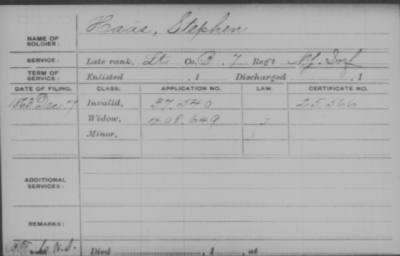 NAME OF SOLDIER: Haas, Stephen
SERVICE: Late rank, Lt Co. B. 7 Reg't N.J. Inf
TERM OF SERVICE: Enlisted , 1 Discharged , 1
DATE OF FILING. CLASS. APPLICATION NO. LAW. CERTIFICATE NO.
1863 Dec 7 Invalid, 37.540 25.566
Widow, 408.649
Minor,
ADDITIONAL SERVICES:
REMARKS:
Died , 1 , at